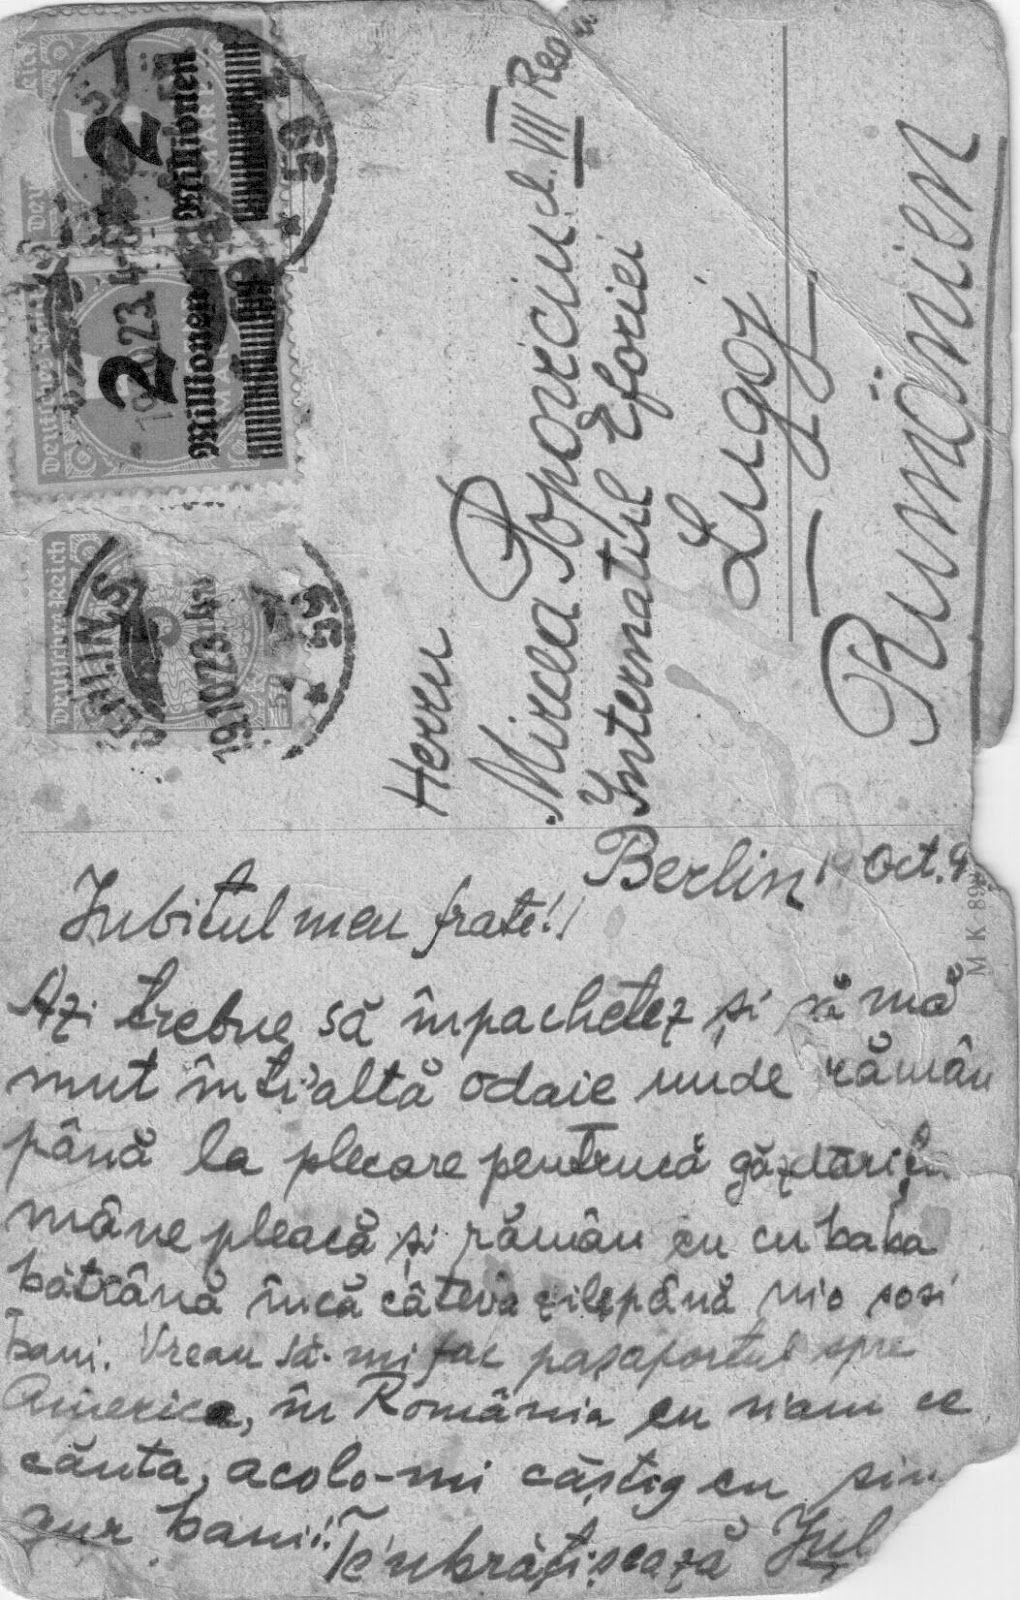 Deutsches Reich
2 Millionen
2 Millionen
19.10.23.4-
Deutsches Reich
BERLIN S
19.10.23.4-
59
Herrn
Mircea Popoviciu cl. VIII Real
Internatul Eforiei
Lugoj
Rumänien
MK 89
Berlin 19 Oct. 9
Iubitul meu frate!!
Azi trebue să împachetez și să mă
mut într'altă odaie unde rămân
până la plecare pentrucă găzdării
mâne pleacă și rămân eu cu baba
bătrână încă câteva zile până mio sosi
bani. Vreau să-mi fac pașaportul spre
America, în România eu n'am ce
căuta, acolo-mi câștig eu sin
gur banii!!
Te'mbrățișează Iul